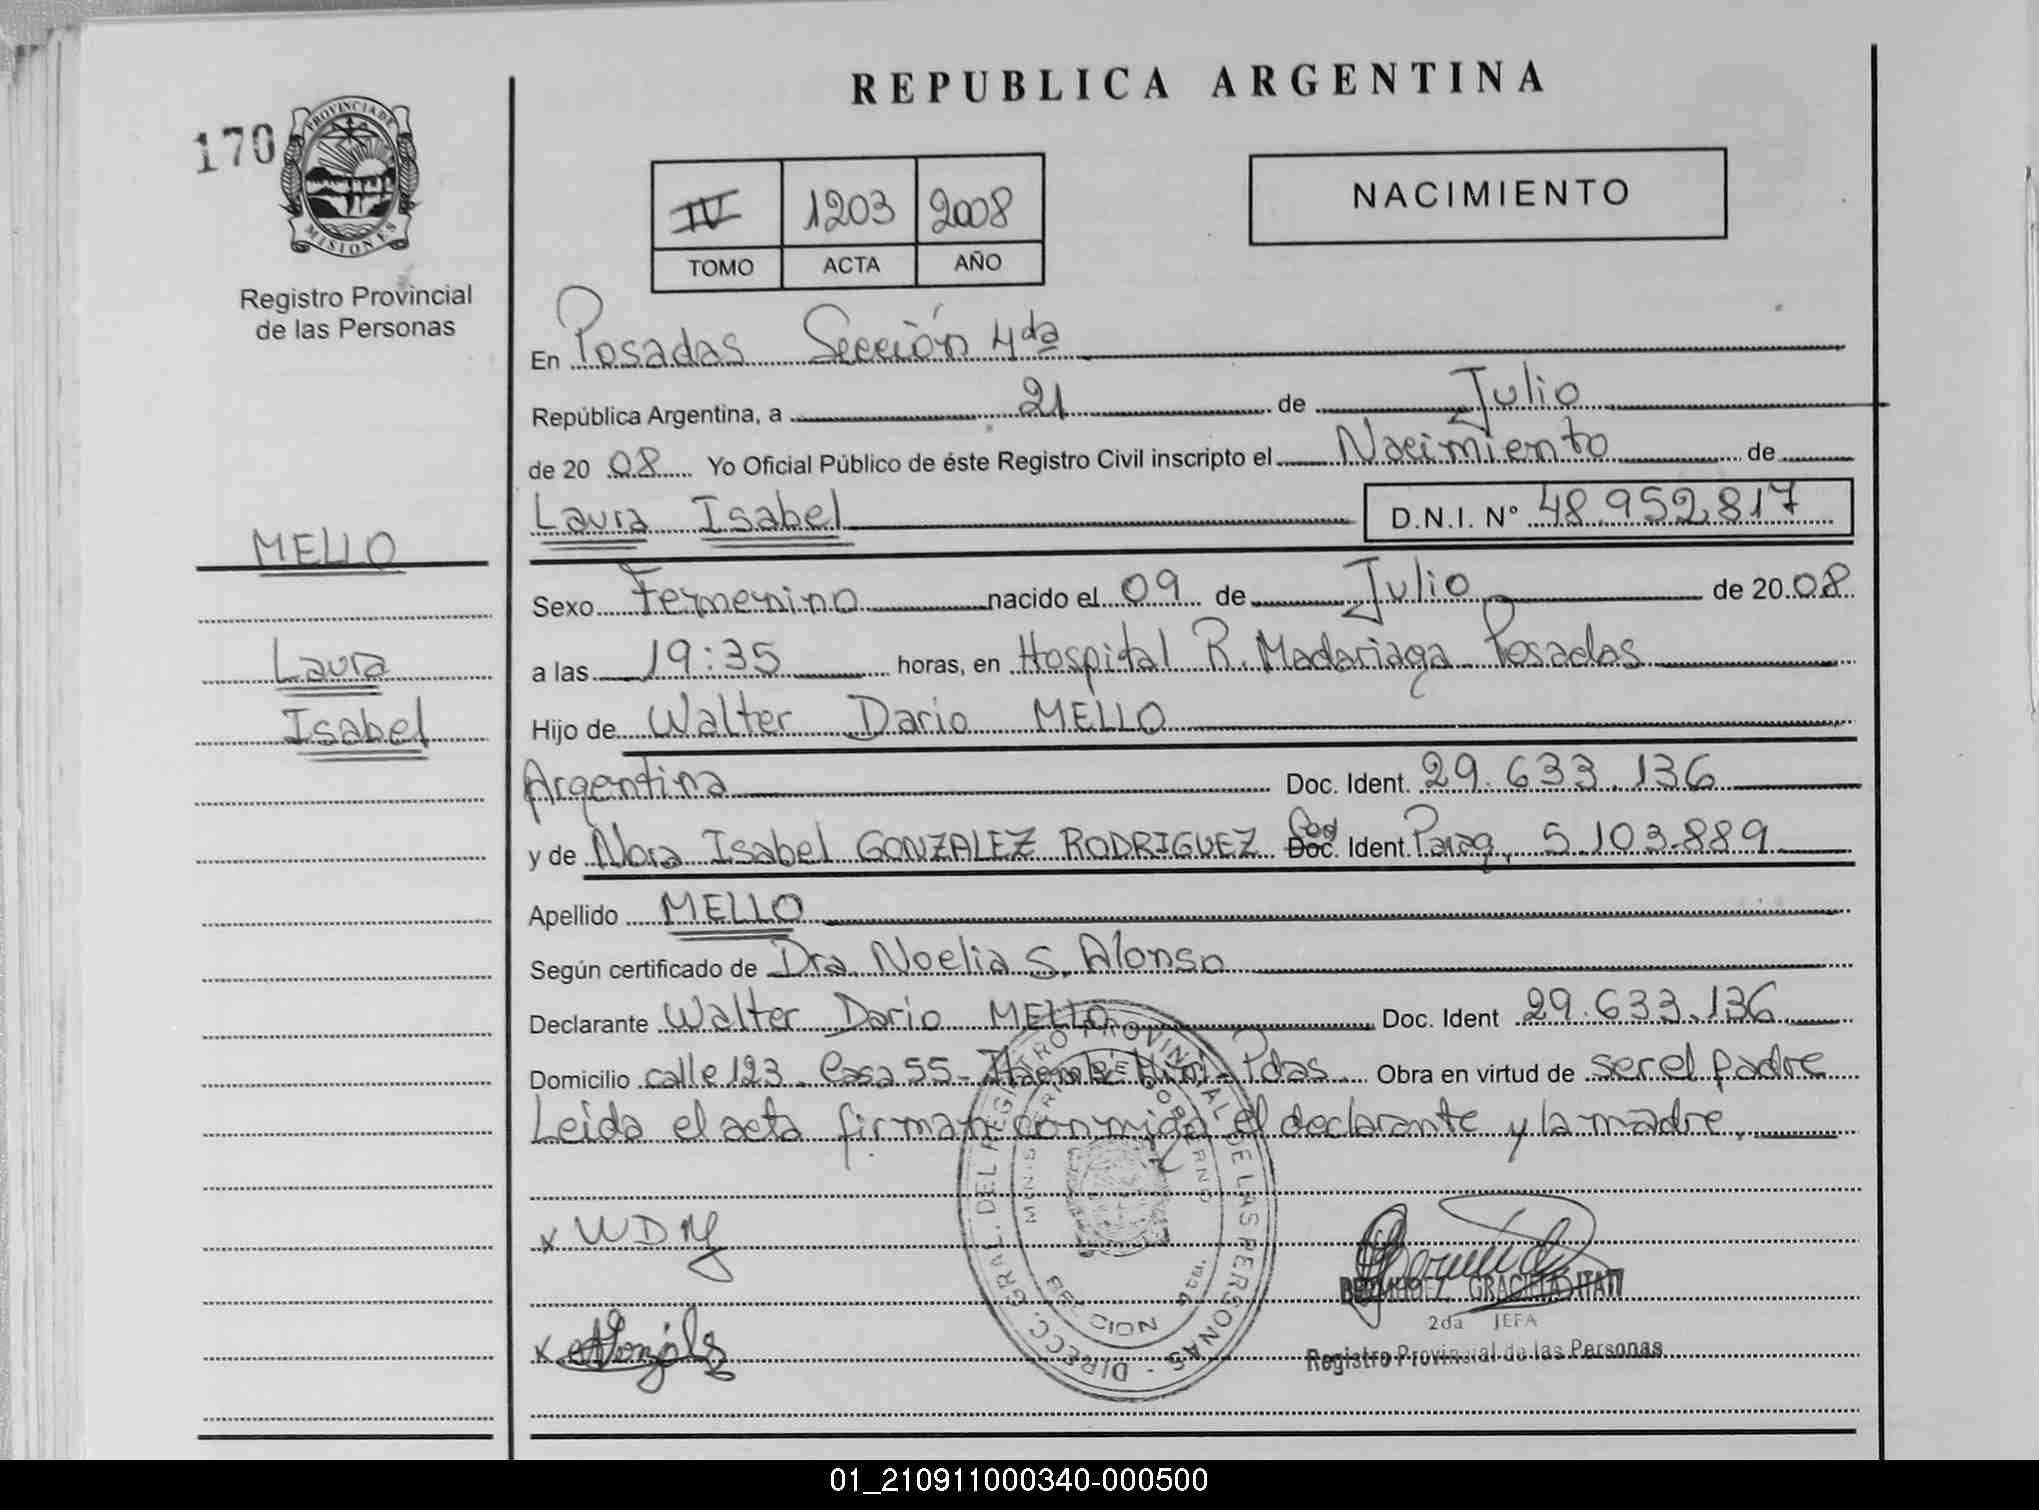 REPUBLICA ARGENTINA
170
PROVINCIA DE
MISIONES
Registro Provincial
de las Personas
IV 1203 2008
TOMO ACTA AÑO
NACIMIENTO
En Posadas Sección 4da
República Argentina, a 21 de Julio
de 20 08 Yo Oficial Público de éste Registro Civil inscripto el Nacimiento de
Laura Isabel D.N.I. Nº 48.952.817
MELLO
Laura
Isabel
Sexo Femenino nacido el 09 de Julio de 20 08
a las 19:35 horas, en Hospital R. Madariaga Posadas
Hijo de Walter Dario MELLO
Argentina Doc. Ident. 29.633.136
y de Nora Isabel GONZALEZ RODRIGUEZ Doc. Ident. Parag. 5.103.889
Apellido MELLO
Según certificado de Dra. Noelia S. Alonso
Declarante Walter Dario MELLO Doc. Ident 29.633.136
Domicilio calle 123. Casa 55- Mini- Pdas. Obra en virtud de ser el padre
Leida el acta firman conmigo el declarante y la madre.
x WDM
DIRECC. GRAL. DEL REGISTRO PROVINCIAL DE LAS PERSONAS
GRACIELA ITATI
2da JEFA
Registro Provincial de las Personas
01_210911000340-000500